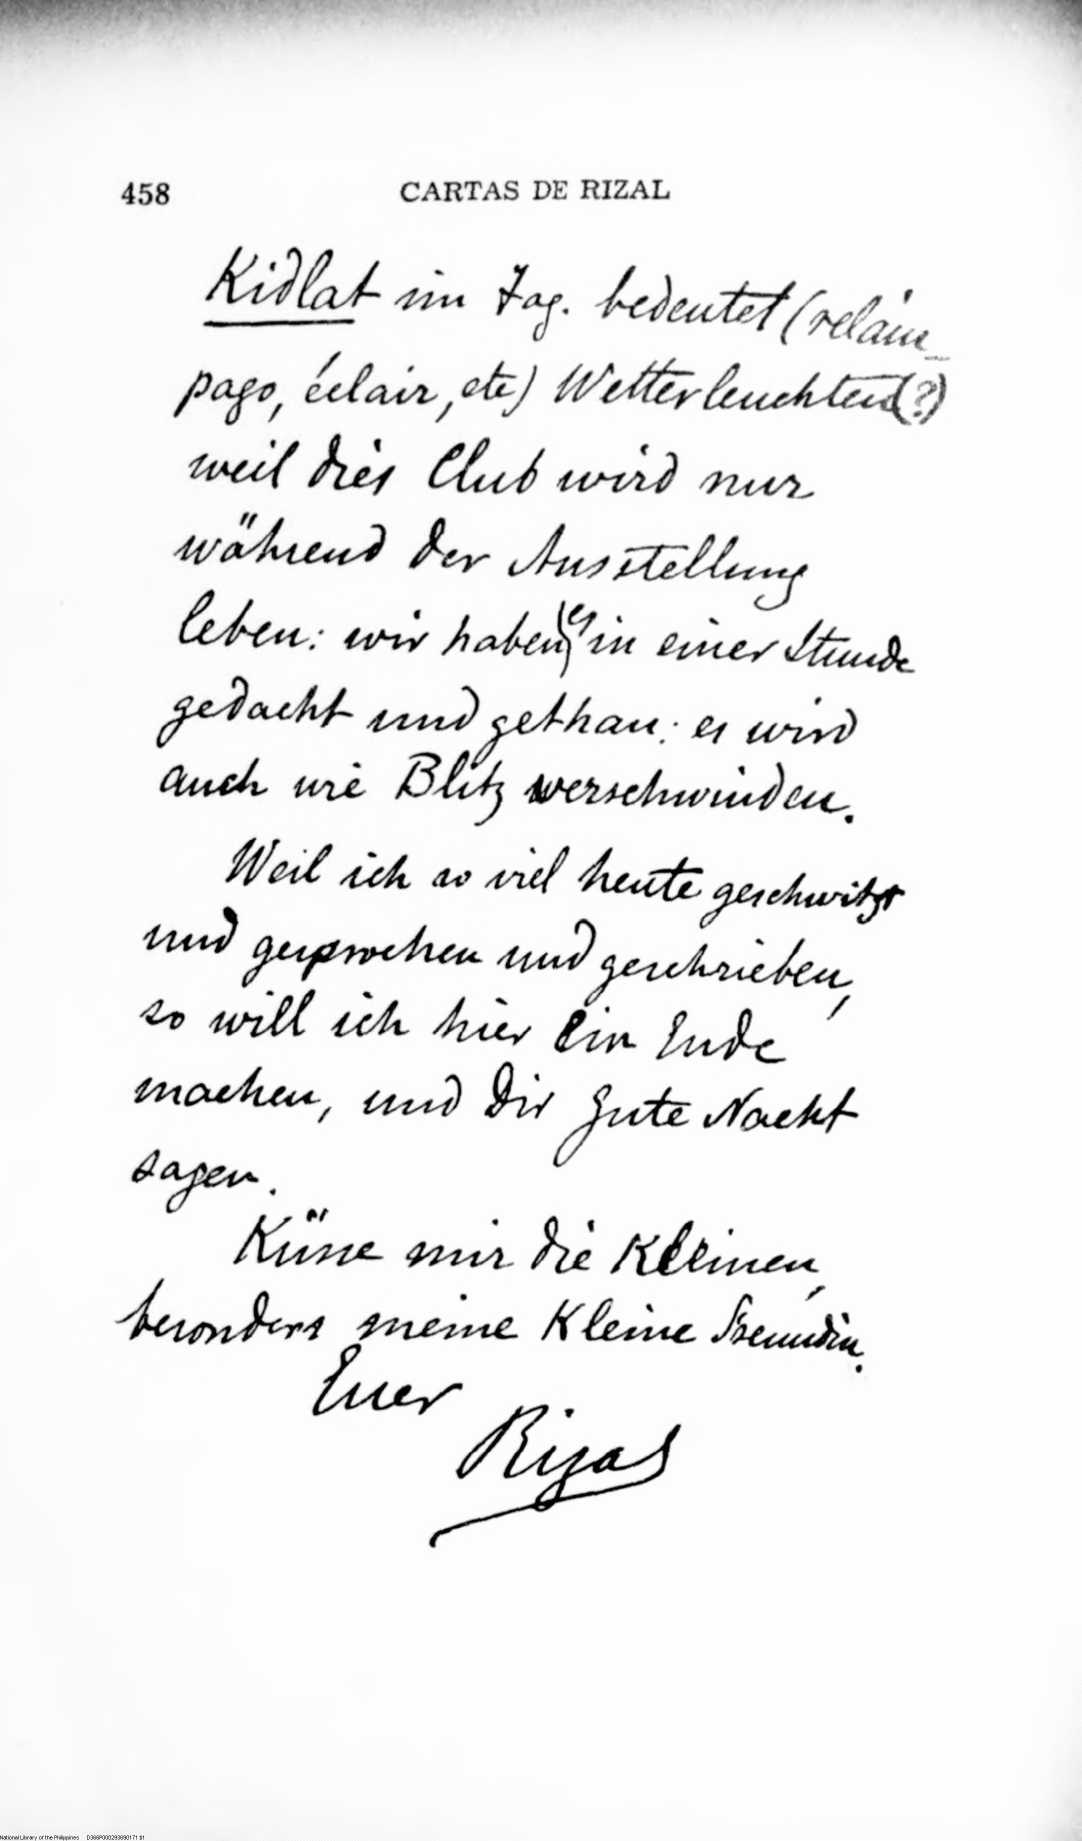 458 CARTAS DE RIZAL
Kidlat im Tag. bedeutet (relám-
pago, éclair, etc) Wetterleuchten (?)
weil dies Club wird nur
während der Ausstellung
leben: wir haben es in einer Stunde
gedacht und gethan: es wird
auch wie Blitz verschwinden.
Weil ich so viel heute geschwitzt
und gesprochen und geschrieben,
so will ich hier ein Ende
machen, und Dir gute Nacht
sagen.
Küsse mir die Kleinen,
besonders meine Kleine Freundin.
Euer
Rizal
National Library of the Philippines